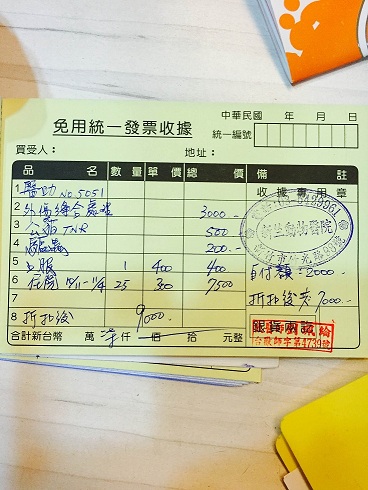 免用統一發票收據
中華民國 年 月 日
統一編號
買受人： 地址：
品名 數量 單價 總價 備註
1 醫助 NO 5051 收據專用章
2 外傷縫合處理 3000-
3 公貓 TNR 500
4 驅蟲 200-
5 口服 1 400 400 自付額：2000-
6 住院 10/11-11/4 25 300 7500 折扣後共7000-
7
8 折扣後 9000- 銀貨兩訖
合計新台幣 萬 仟 佰 拾 元整
動物醫院
字第4739號